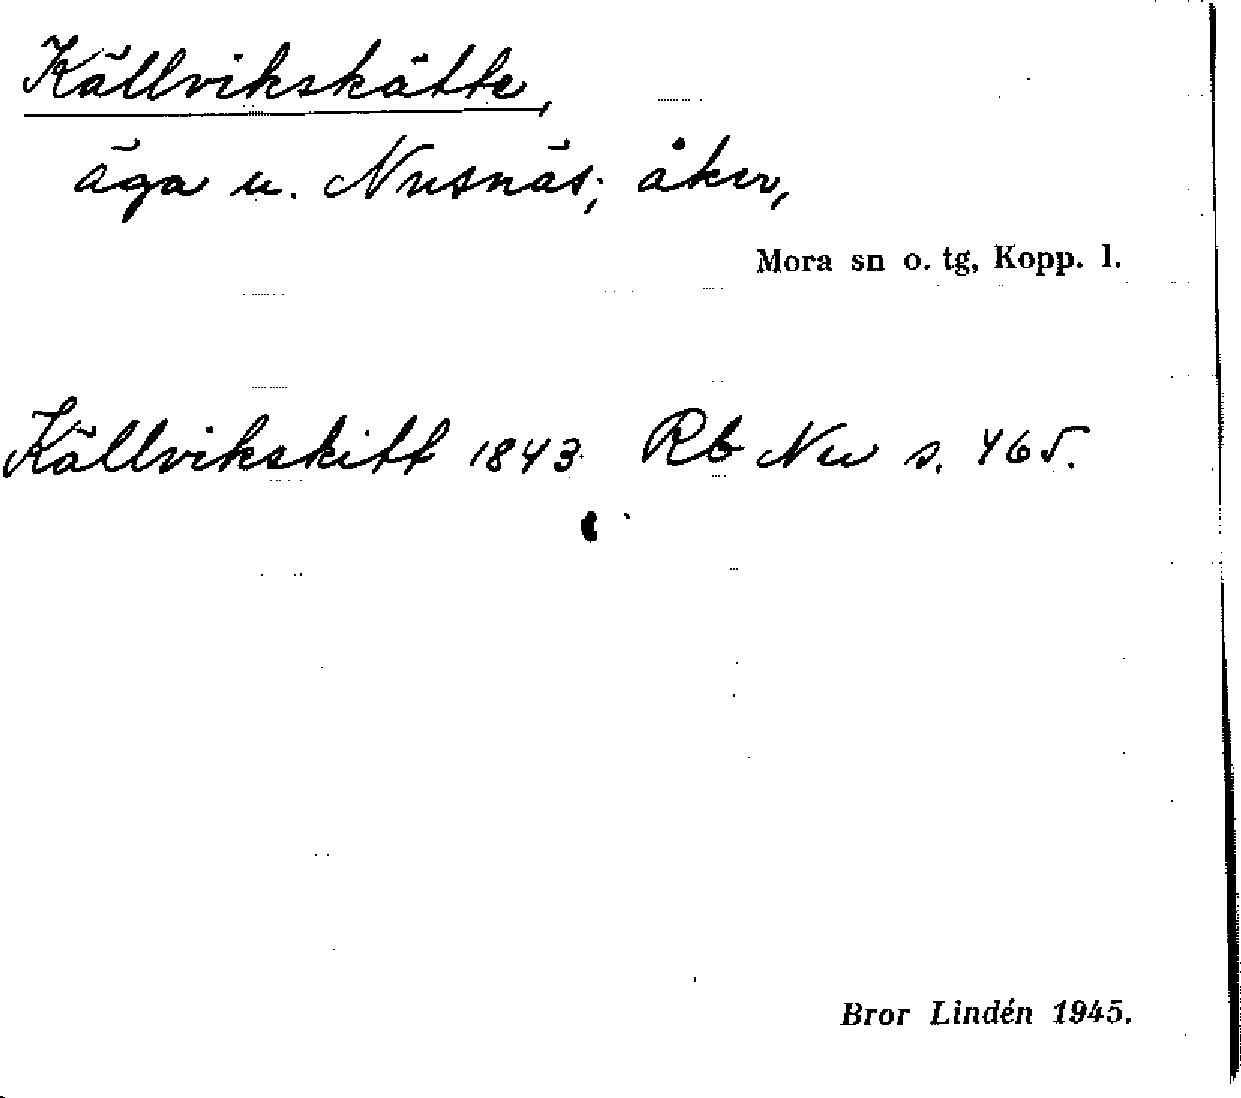 Källvikskätte,
äga u. Nusnäs; åker,
Mora sn o. tg, Kopp. l.
Källvikskitt 1843 Rb Nu s. 465.
Bror Lindén 1945.